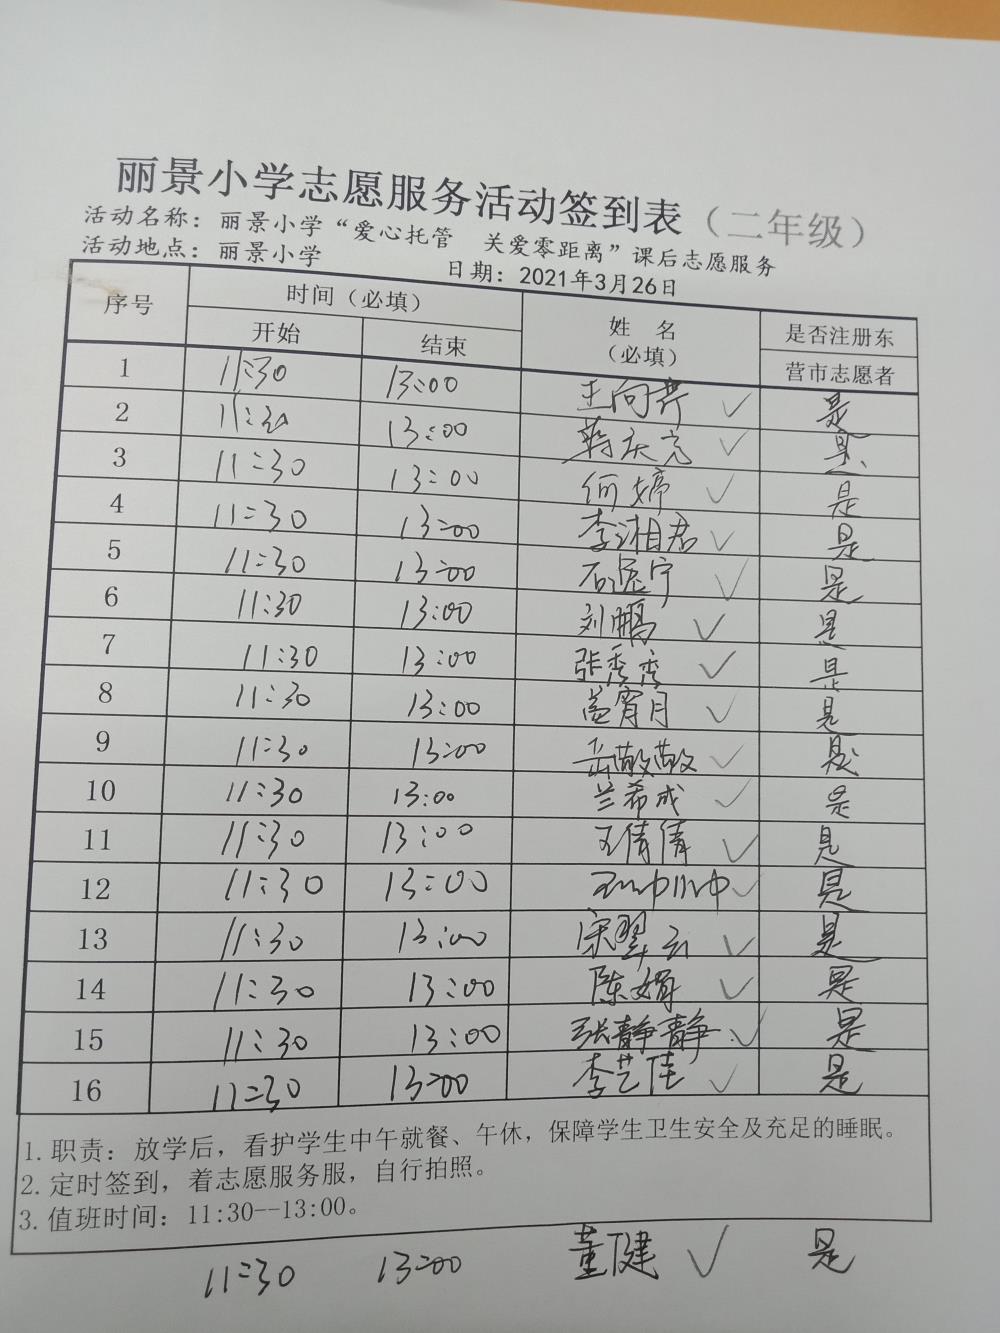 丽景小学志愿服务活动签到表（二年级）
活动名称：丽景小学“爱心托管 关爱零距离”课后志愿服务
活动地点：丽景小学 日期：2021年3月26日
序号 时间（必填） 姓 名（必填） 是否注册东营市志愿者
开始 结束
1 11:30 13:00 王向荣 ✓ 是
2 11:30 13:00 蒋庆亮 ✓ 是
3 11:30 13:00 何婷 ✓ 是
4 11:30 13:00 李湘君 ✓ 是
5 11:30 13:00 石 宁 ✓ 是
6 11:30 13:00 刘鹏 ✓ 是
7 11:30 13:00 张秀秀 ✓ 是
8 11:30 13:00 盖宵月 ✓ 是
9 11:30 13:00 岳敏敏 ✓ 是
10 11:30 13:00 兰希成 ✓ 是
11 11:30 13:00 王倩倩 ✓ 是
12 11:30 13:00 ✓ 是
13 11:30 13:00 宋翠云 ✓ 是
14 11:30 13:00 陈娟 ✓ 是
15 11:30 13:00 张静静 ✓ 是
16 11:30 13:00 李艺佳 ✓ 是
1.职责：放学后，看护学生中午就餐、午休，保障学生卫生安全及充足的睡眠。
2.定时签到，着志愿服务服，自行拍照。
3.值班时间：11:30--13:00。
11:30 13:00 董健 ✓ 是